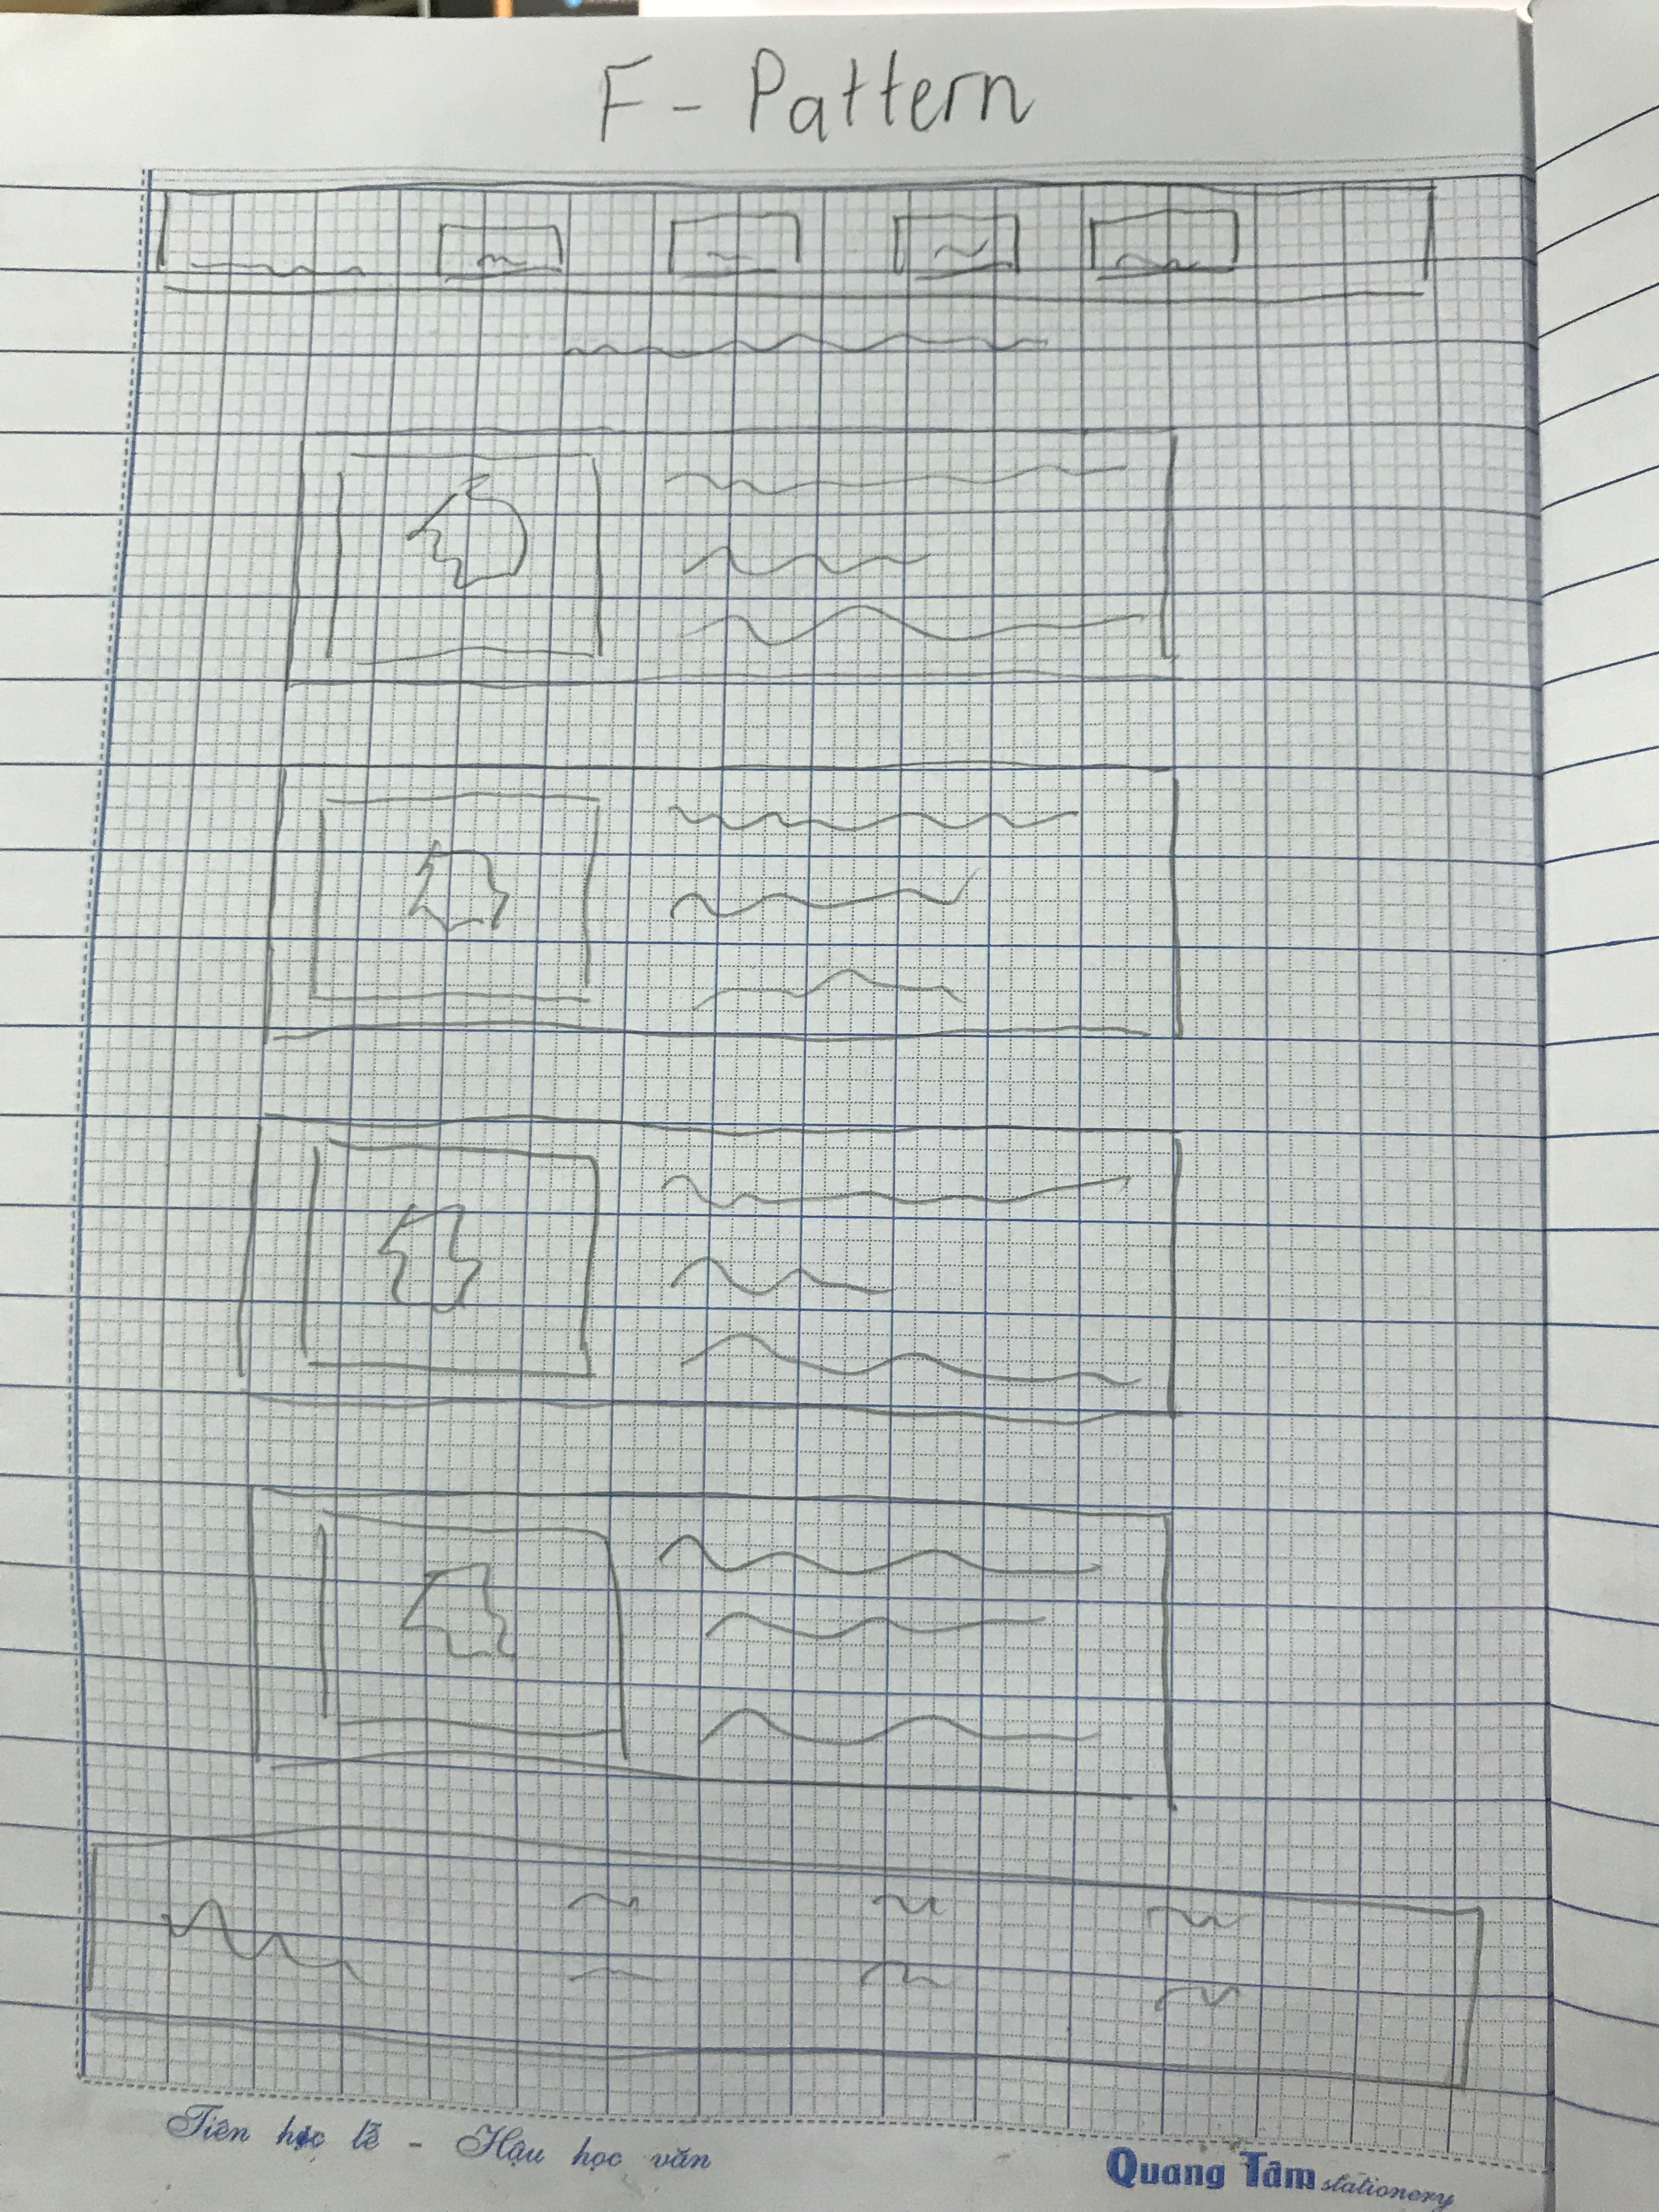 F - Pattern
Tiên học lễ - Hậu học văn
Quang Tâm stationery